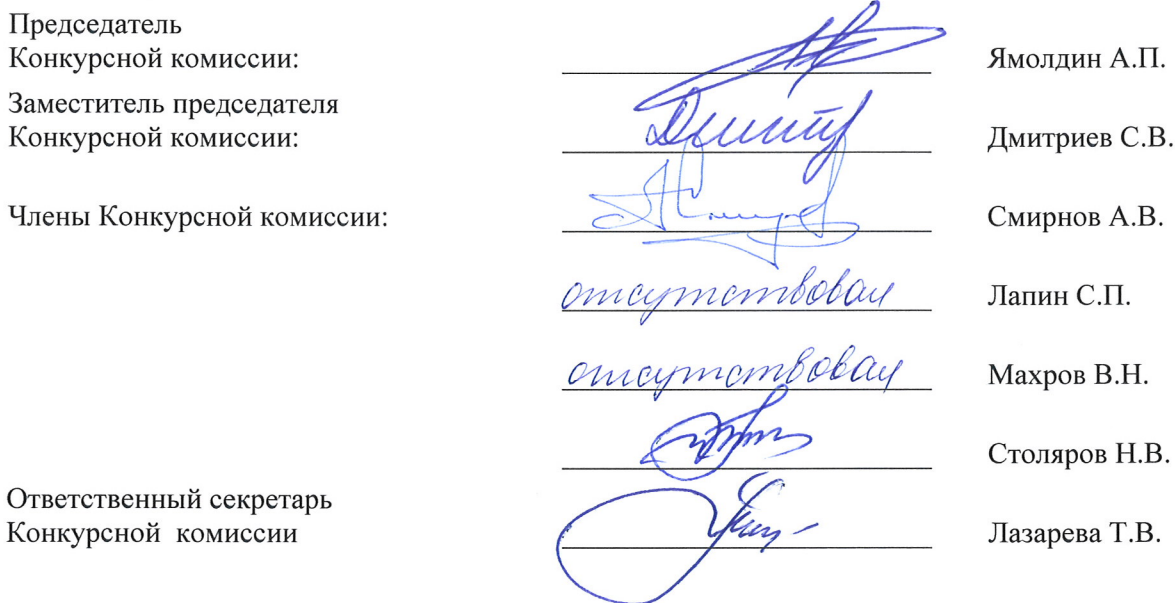 Председатель
Конкурсной комиссии: Ямолдин А.П.
Заместитель председателя
Конкурсной комиссии: Дмитриев С.В.
Члены Конкурсной комиссии: Смирнов А.В.
отсутствовал Лапин С.П.
отсутствовал Махров В.Н.
Столяров Н.В.
Ответственный секретарь
Конкурсной комиссии Лазарева Т.В.